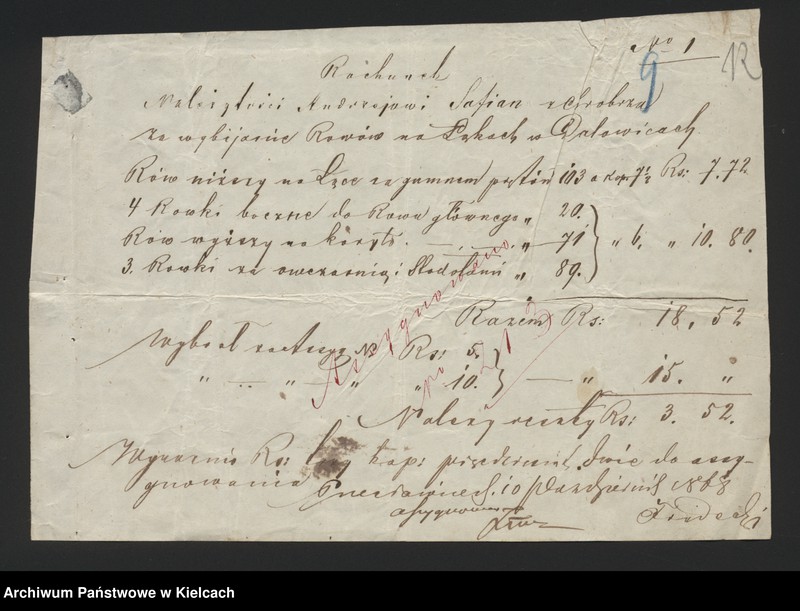 N° 1
9 12
Rachunek
Należytości Andrzejowi Safian z Chrobrza
za wybijanie Rowów na Łąkach w
Rów niższy na Łące za gumnem prętów 103 a kop: 7½ Rs: 7.72
4 Rowki boczne do Rowu głównego „ 20.
Rów wyższy na koryto. — „ — „ 71 } „ 6, „ 10. 80.
3. Rowki za owczarnią i Stodołami „ 89.
Razem Rs: 18. 52
Assygnowano
Wybrał Rs: 5.
„ — „ — „ „ 10. } — „ 15. „
Należy reszty Rs: 3. 52.
Wyraźnie Rs: trzy kop: pięćdziesiąt dwie do assy-
gnowania
10 Października 1868
assygnowano
Archiwum Państwowe w Kielcach